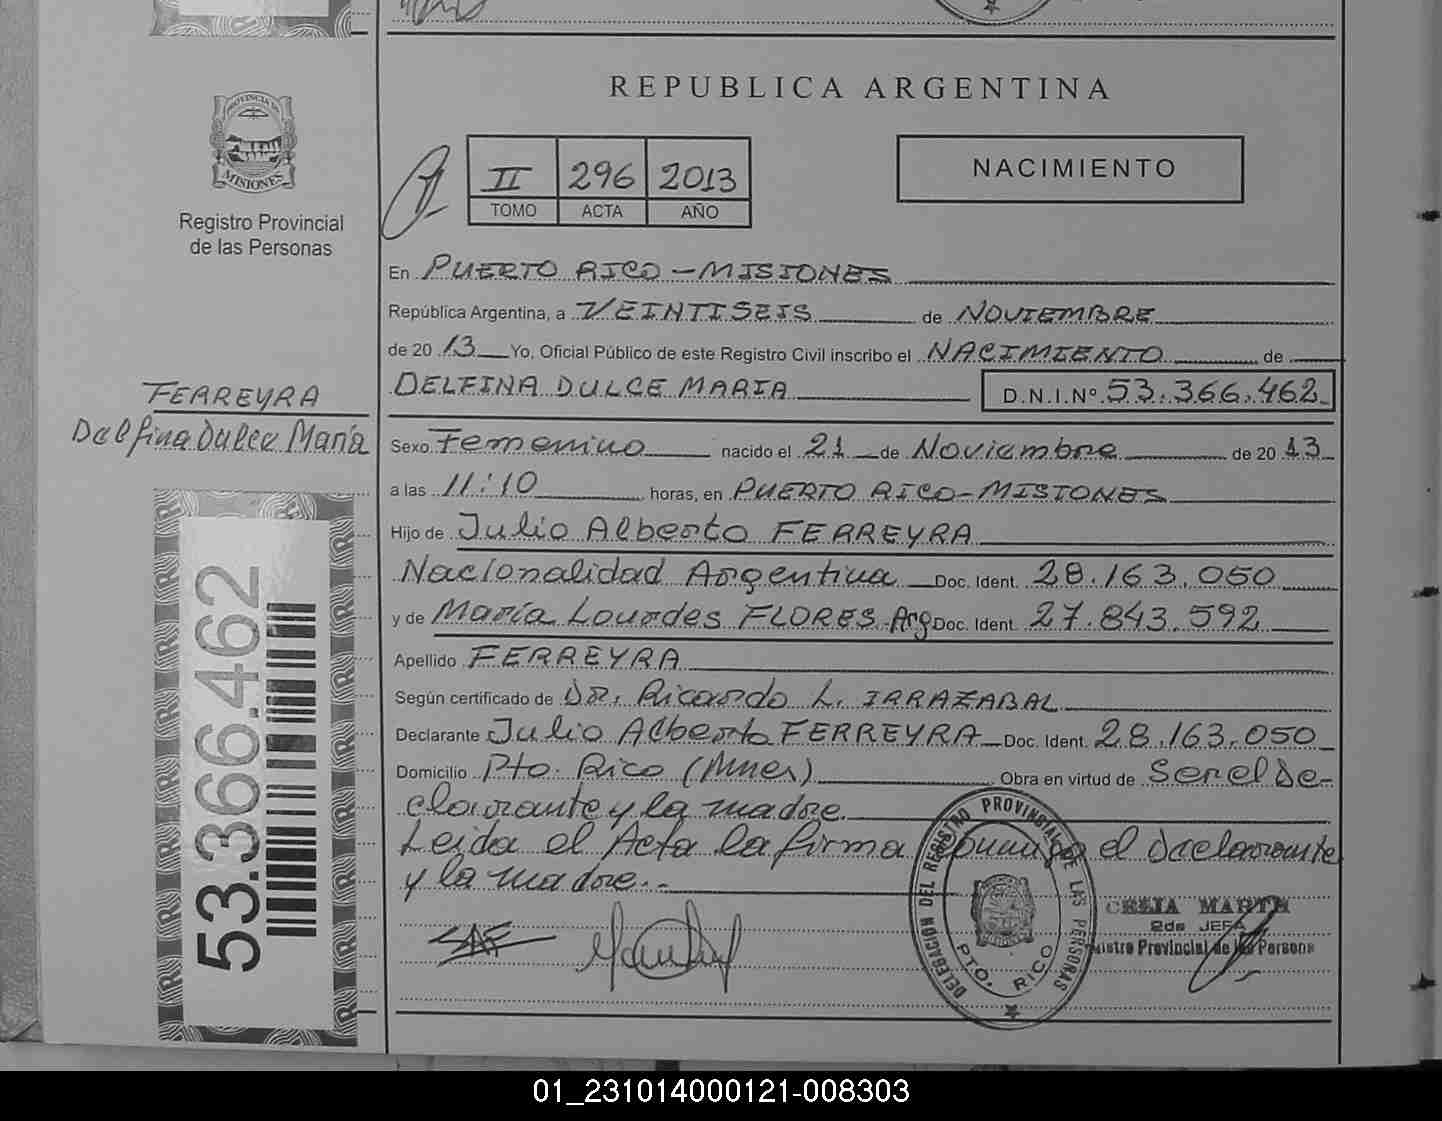 REPUBLICA ARGENTINA
PROVINCIA DE
MISIONES
Registro Provincial
de las Personas
II 296 2013
TOMO ACTA AÑO
NACIMIENTO
En PUERTO RICO - MISIONES
República Argentina, a VEINTISEIS de NOVIEMBRE
de 20 13 Yo, Oficial Público de este Registro Civil inscribo el NACIMIENTO de
DELFINA DULCE MARIA D.N.I.Nº 53.366.462
FERREYRA
Delfina Dulce María
Sexo Femenino nacido el 21 de Noviembre de 20 13
a las 11:10 horas, en PUERTO RICO - MISIONES
Hijo de Julio Alberto FERREYRA
Nacionalidad Argentina Doc. Ident. 28.163.050
y de María Lourdes FLORES - Arg Doc. Ident. 27.843.592
Apellido FERREYRA
Según certificado de Dr. Ricardo L. IRRAZABAL
Declarante Julio Alberto FERREYRA Doc. Ident. 28.163.050
Domicilio Pto. Rico (Mnes) Obra en virtud de Ser el De-
clarante y la madre.
Leida el Acta la firma conmigo el declarante
y la madre.-
53.366.462
DELEGACION DEL REGISTRO PROVINCIAL DE LAS PERSONAS
PTO. RICO
CELIA MARTA
2da JEFA
Provincial de las Persona
01_231014000121-008303